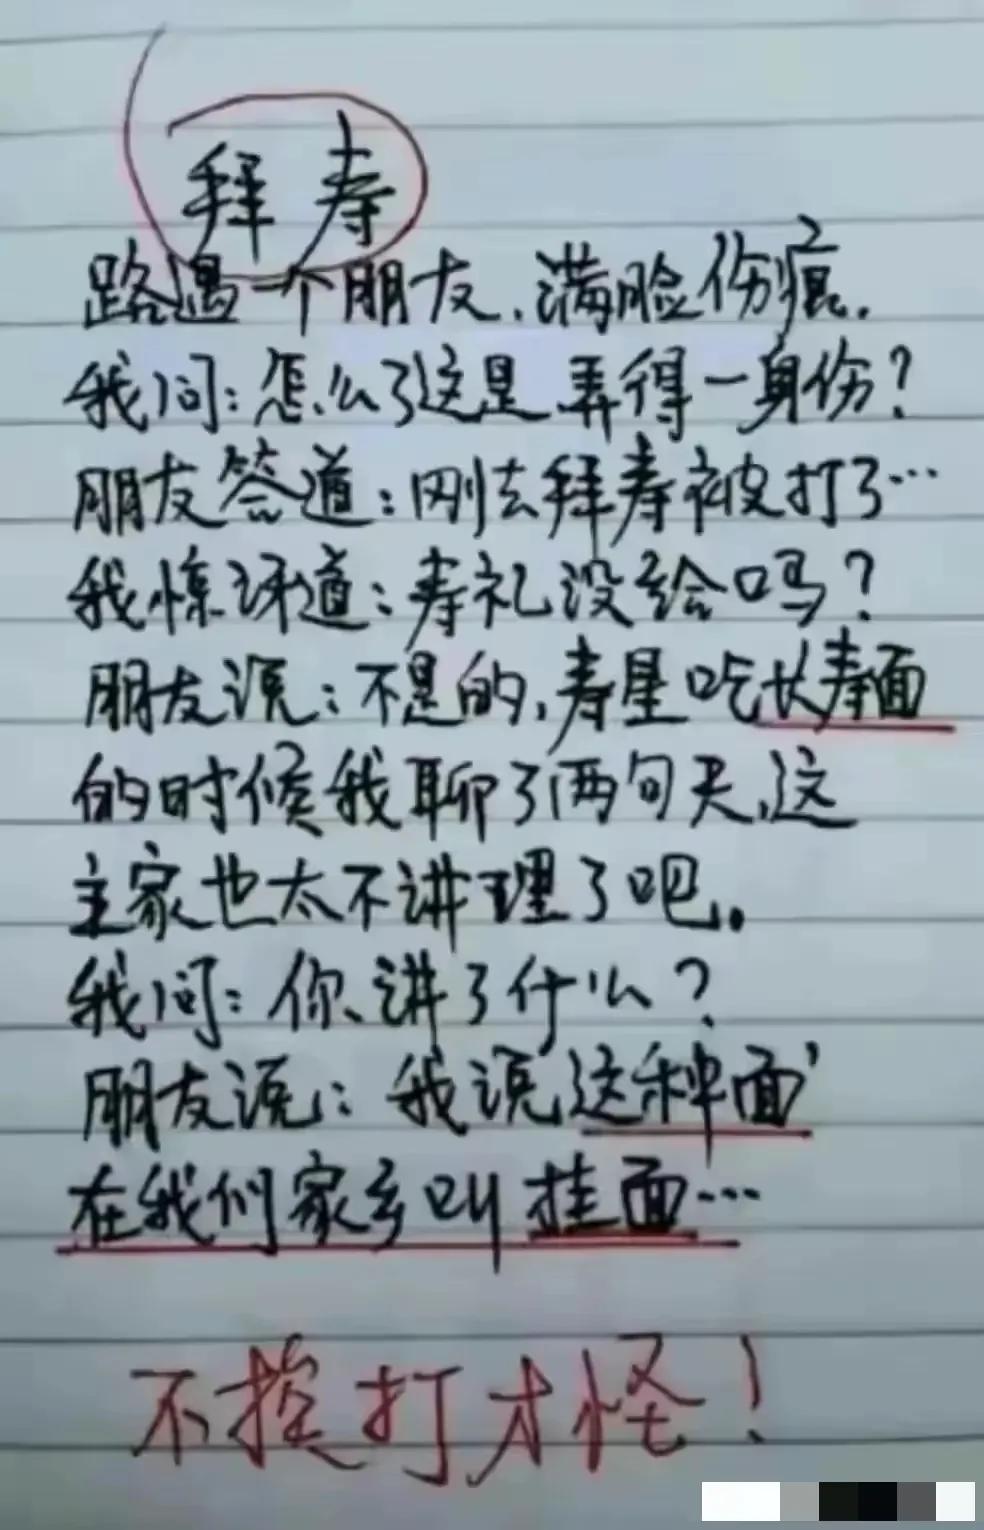 拜寿
路遇一个朋友,满脸伤痕.
我问:怎么了这是弄得一身伤?
朋友答道:刚去拜寿被打了…
我惊讶道:寿礼没给吗?
朋友说:不是的,寿星吃长寿面
的时候我聊了两句天,这
主家也太不讲理了吧。
我问:你讲了什么?
朋友说:我说这种面
在我们家乡叫挂面…
不挨打才怪!